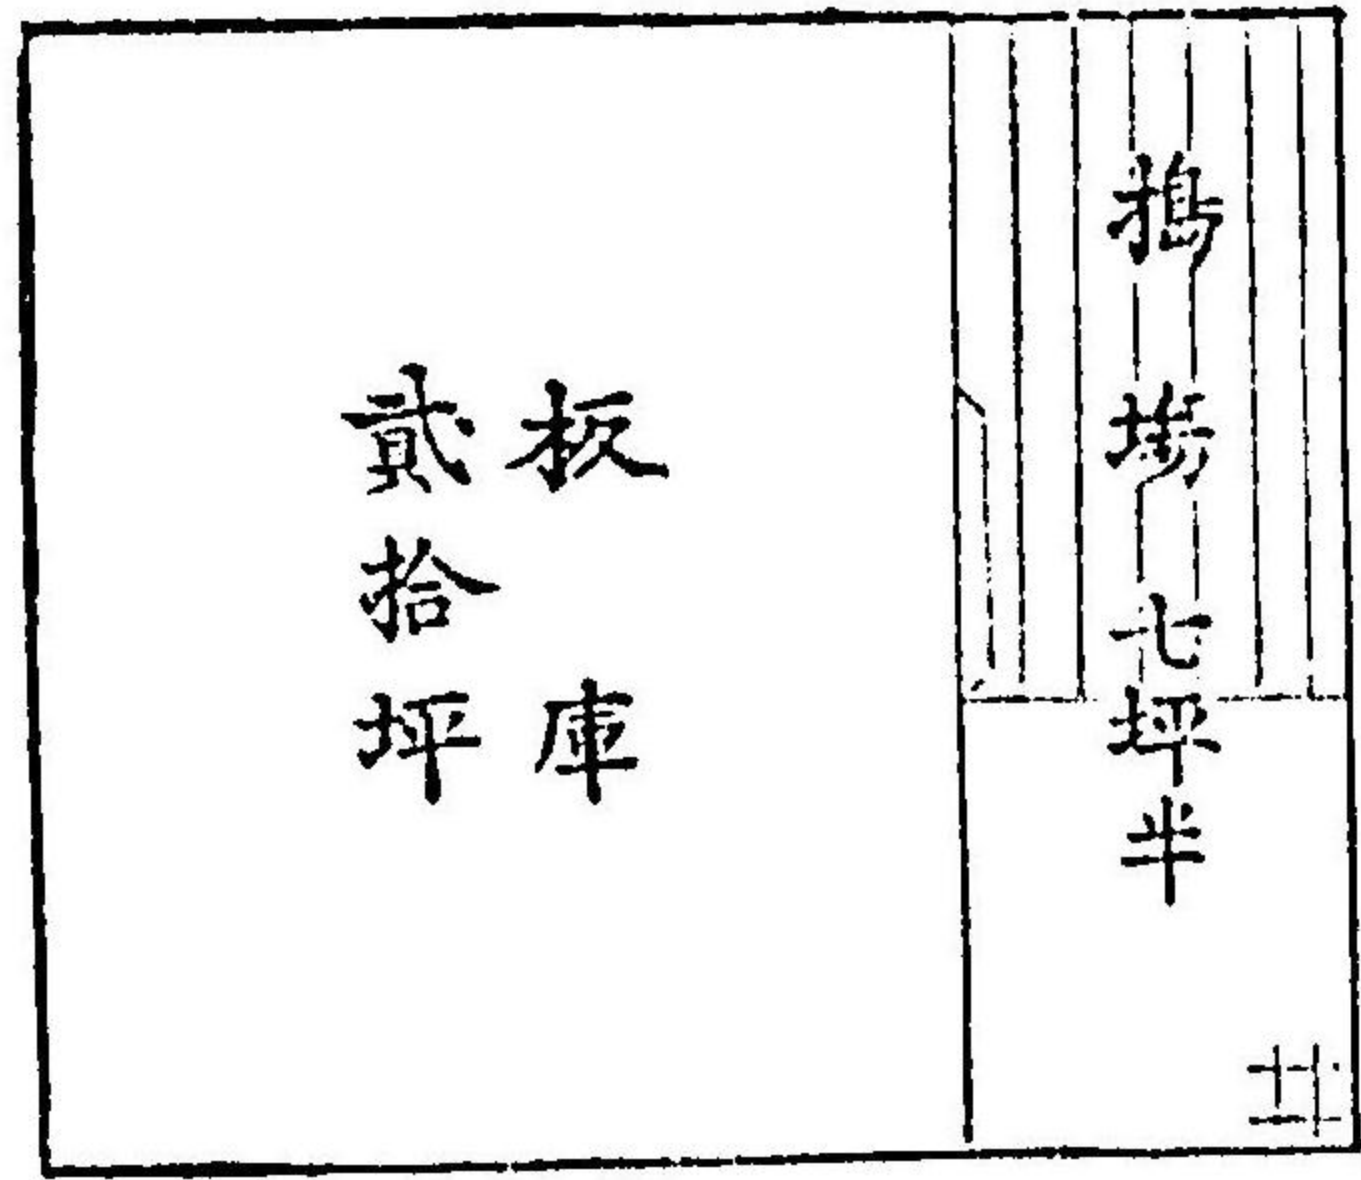 搗場七坪半
板庫
貳拾坪